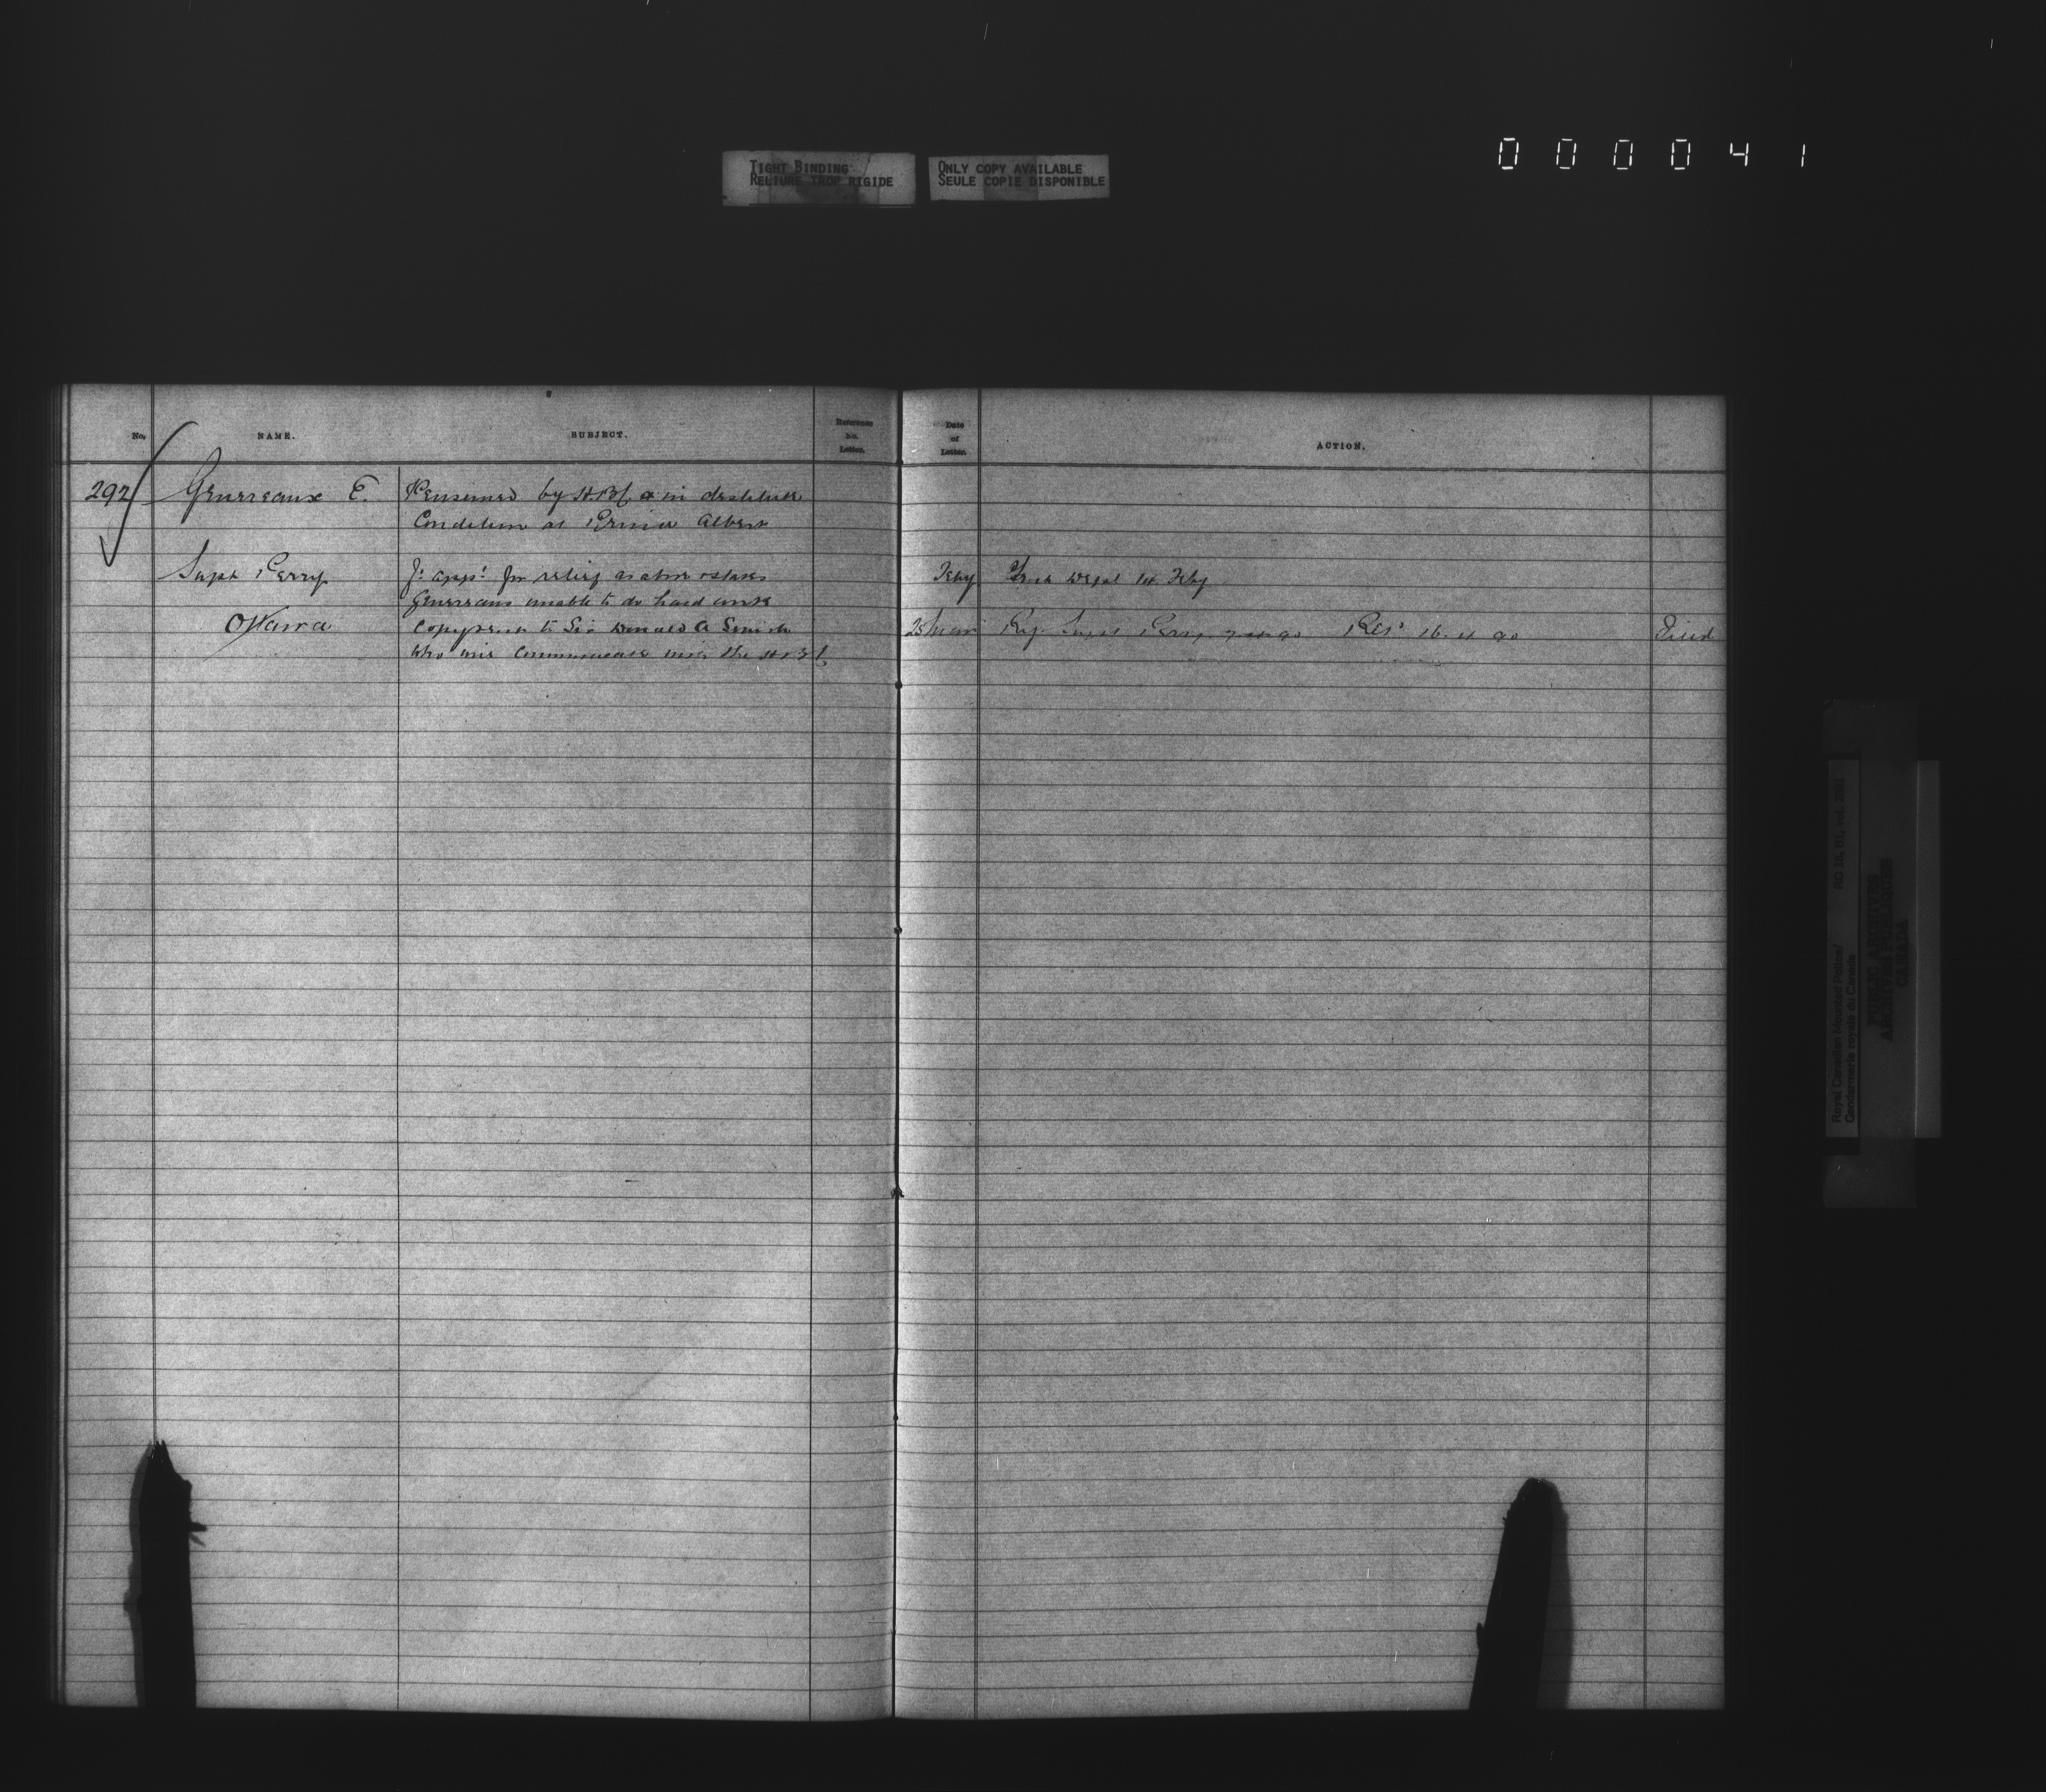 000041
TIGHT BINDING
RELIURE TROP RIGIDE
ONLY COPY AVAILABLE
SEULE COPIE DISPONIBLE
No. NAME. SUBJECT. Reference No. Letter. Date of Letter. ACTION.
292 Genereaux E. Pensioned by H.B.C. & in destitute
Condition at Prince Albert
Supt Perry for relief as above states Feby 1st Feby
Genereaux unable to do hard work
Ottawa Copy sent to Sir Donald A Smith 25 Mar Reg. Supt Perry Filed
who will communicate with the H.B.C.
Royal Canadian Mounted Police/
Gendarmerie royale du Canada
RG 18, B1, vol.
PUBLIC ARCHIVES
ARCHIVES PUBLIQUES
CANADA